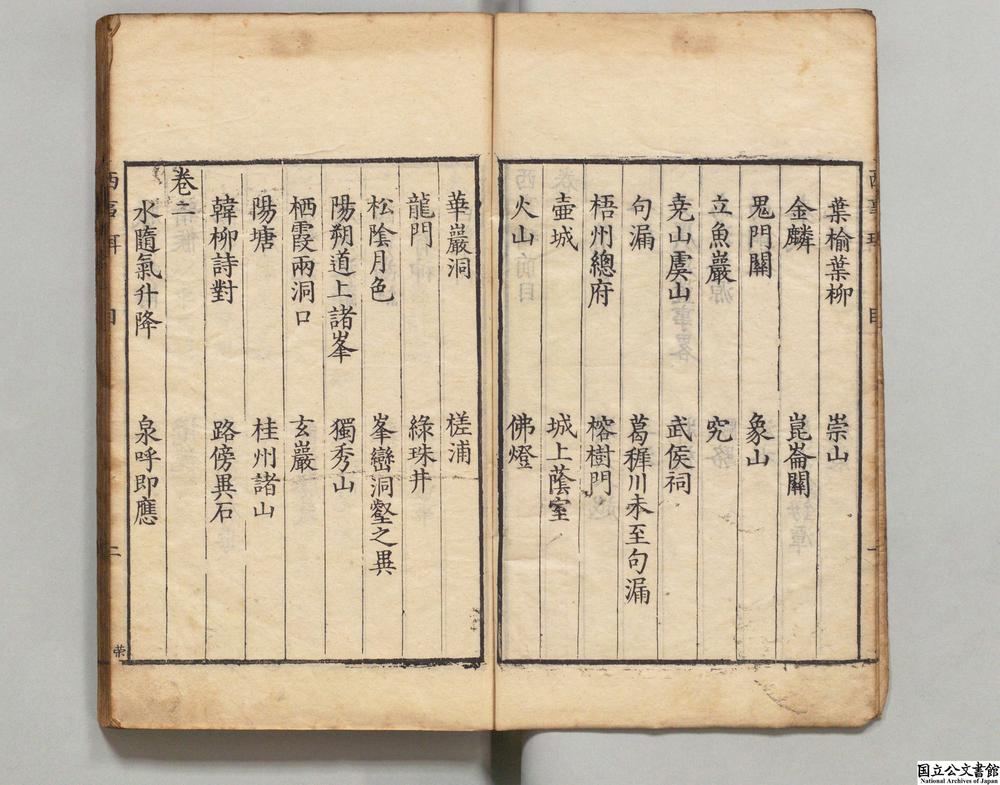 葉榆葉柳　崇山
金麟　崑崙關
鬼門關　象山
立魚巖　究
尭山虞山　武侯祠
句漏　葛稺川未至句漏
梧州總府　榕樹門
壷城　城上蔭室
火山　佛燈
華巖洞　槎浦
龍門　綠珠井
松陰月色　峯巒洞壑之異
陽朔道上諸峯　獨秀山
栖霞兩洞口　玄巖
陽塘　桂州諸山
韓柳詩對　路傍異石
卷二
水隨氣升降　泉呼即應
西事珥　目　二
荣
国立公文書館
National Archives of Japan